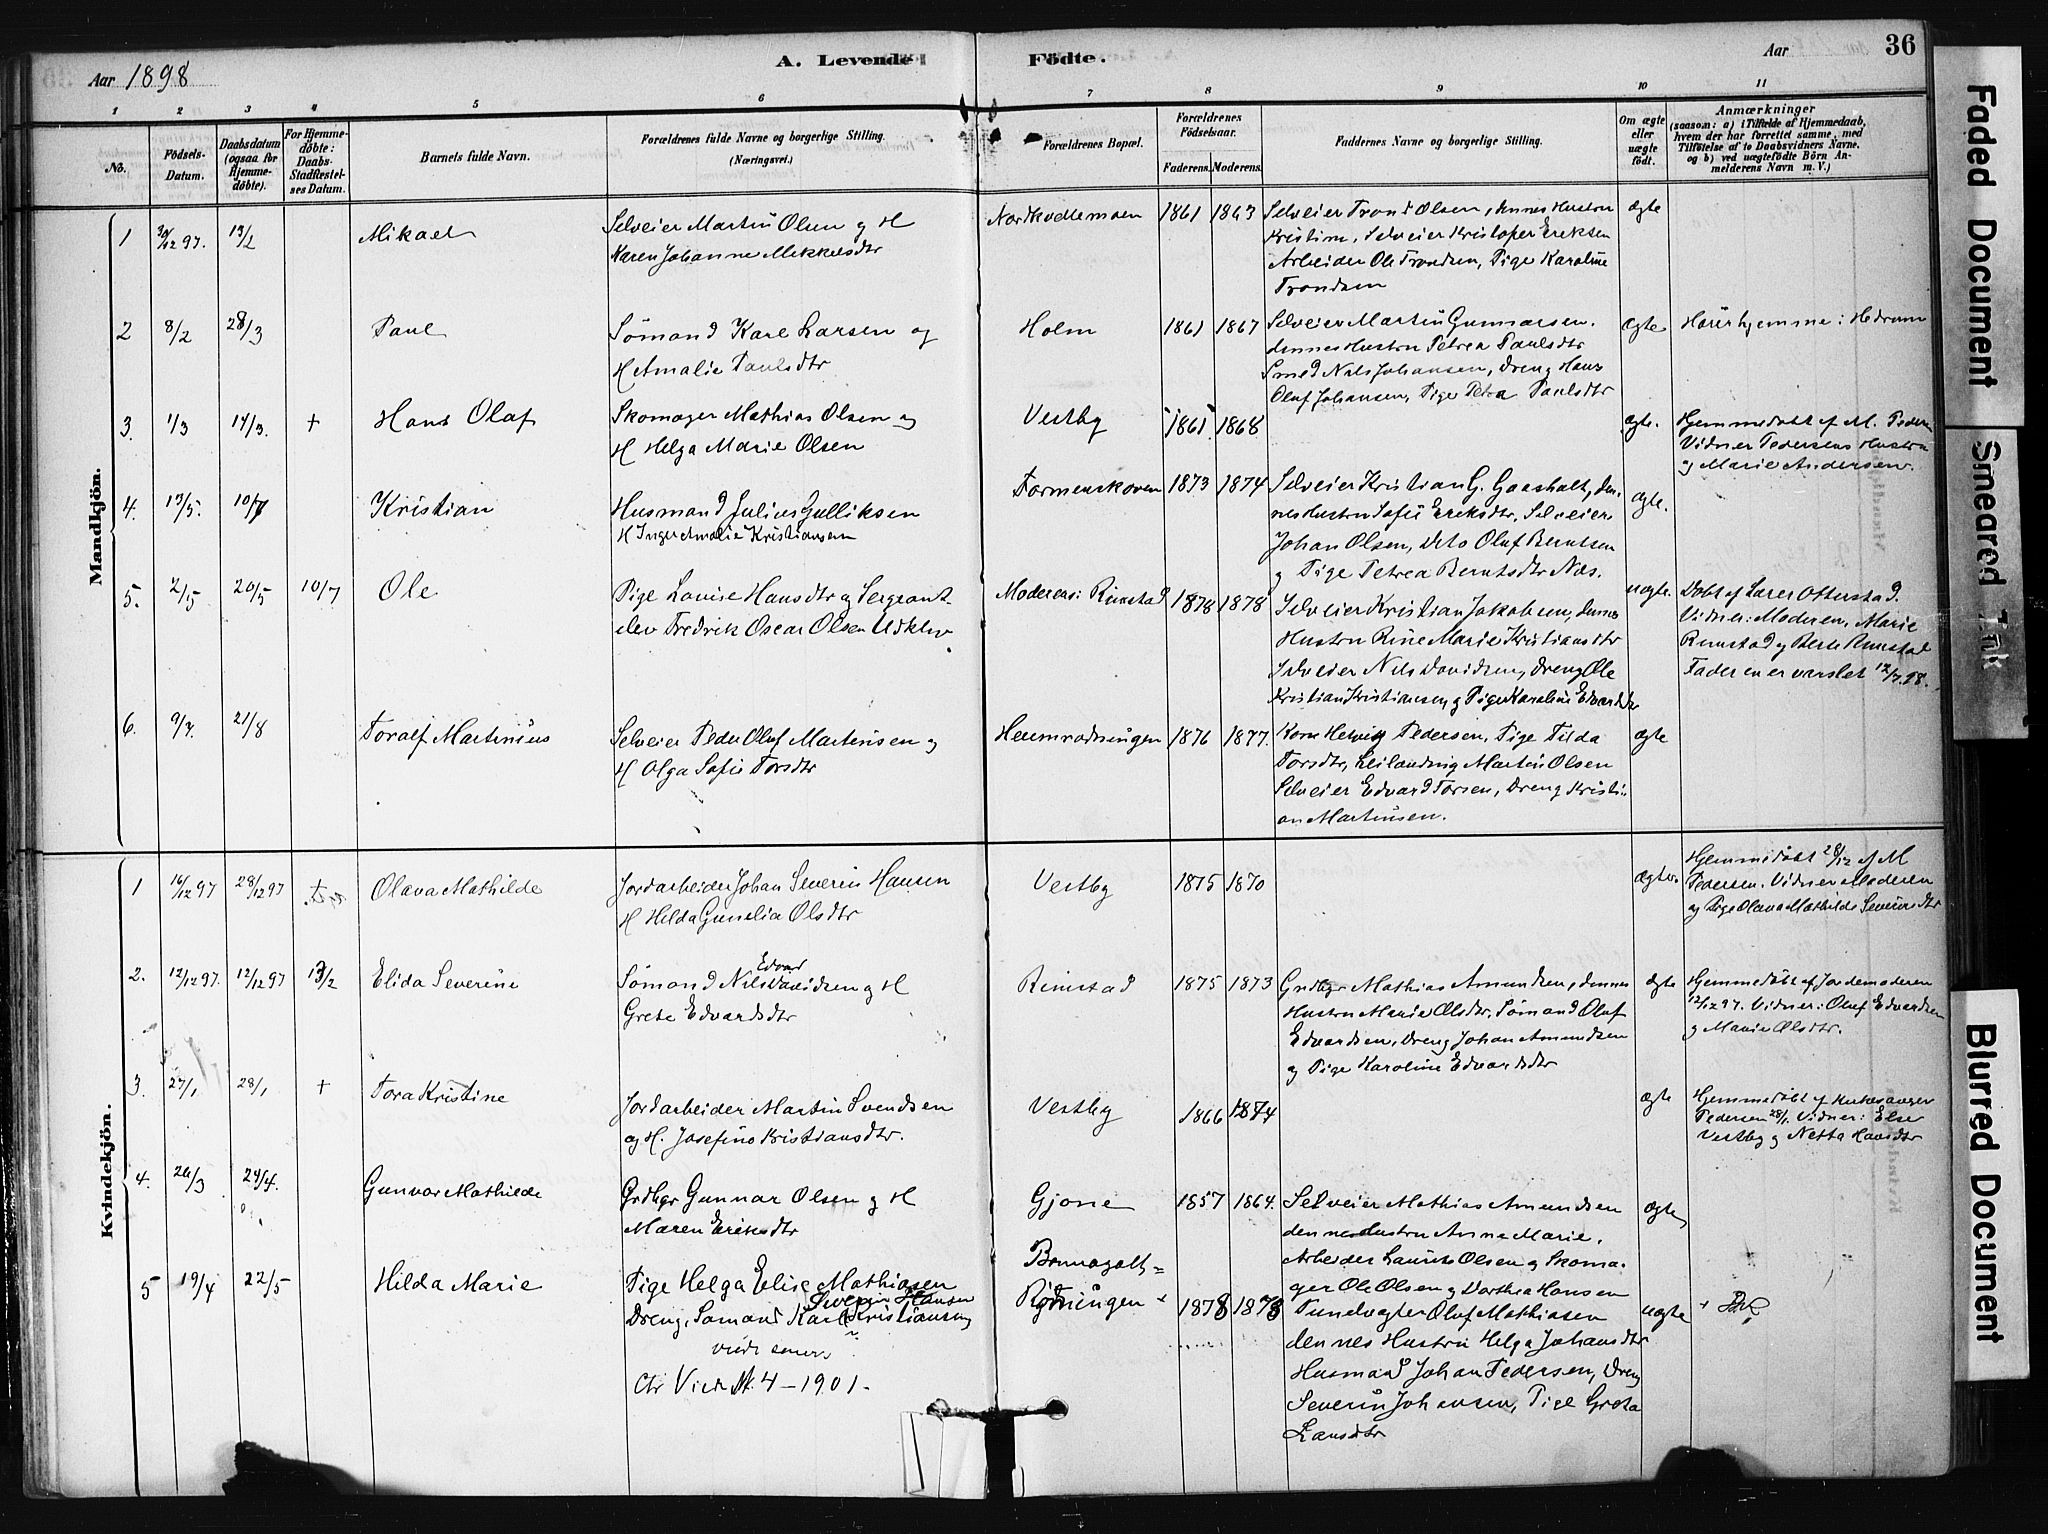 Aar 1898
A. Levende Fødte.
Aar
36
1 2 3 4 5 6 7 8 9 10 11
No.
Fødsels-Datum.
Daabsdatum (ogsaa for Hjemmedöbte).
For Hjemmedöbte: Daabs-Stadfæstelses Datum.
Barnets fulde Navn.
Forældrenes fulde Navne og borgerlige Stilling. (Næringsvei.)
Forældrenes Bopæl.
Forældrenes Födselsaar.
Faderens. Moderens.
Faddernes Navne og borgerlige Stilling.
Om ægte eller uægte födt.
Anmærkninger
(saasom: a) i Tilfælde af Hjemmedaab, hvem der har forrettet samme, med Tilföielse af to Daabsvidners Navne, og b) ved uægtefödte Börn Anmelderens Navn m. V.)
Mandkjön.
1 30/12 97. 13/2 Mikael
Selveier Martin Olsen og H
Karen Johanne Mikkelsdtr
Nordkvellemoen 1861 1863
Selveier Trond Olsen, dennes Hustru
Kristine, Selveier Kristofer Eriksen
Arbeider Ole Trondsen, Pige Karoline
Trondsen
ægte
2 8/2 28/3 Paul
Sömand Karl Larsen og
H Amalie Paulsdtr
Holm 1861 1867
Selveier Martin Gunnarsen,
dennes Hustru Petrea Paulsdtr
Smed Nils Johansen, Dreng Hans
Oluf Johansen, Pige Petra Paulsdtr
ægte
Hörer hjemme i Hedrum
3. 1/3 14/3. + Hans Olaf
Skomager Mathias Olsen og
H Helga Marie Olsen
Vestby 1861. 1868
ægte.
Hjemmedöbt af M. Pedersen
Vidner Pedersens Hustru
og Marie Andersen.
4. 13/5. 10/7 Kristian
Husmand Julius Gulliksen
H Inger Amalie Kristiansen
Formenskoven 1873 1874
Selveier Kristian G. Gaasholt, den-
nes Hustru Sofie Eriksdtr, Selveier
Johan Olsen, Dito Oluf Berntsen
og Pige Petrea Berntsdtr Næs.
ægte.
5. 2/5 20/5 10/7 Ole
Pige Louise Hansdtr og Sergeant-
elev Fredrik Oscar Olsen Udklev
Moderens: Rimstad 1878 1878
Selveier Kristian Jakobsen, dennes
Hustru Rine Marie Kristiansdtr
Selveier Nils Davidsen, Dreng Ole
Kristian Kristiansen og Pige Karoline Edvardsdtr
uægte.
Döbt af Lærer Otterstad.
Vidner: Moderen, Marie
Rimstad og Berte Rimstad
Faderen er varslet 12/7.98.
6. 9/7. 21/8 Toralf Martinius
Selveier Peder Oluf Martinsen og
H Olga Sofie Torsdtr
Heumrödningen 1876 1877.
Kone Helvig Pedersen, Pige Tilda
Torsdtr, Leilænding Martin Olsen
Selveier Edvard Torsen, Dreng Kristi-
an Martinsen.
ægte
Kvindekjön.
1 16/12 97 28/12 97 +. Olava Mathilde
Jordarbeider Johan Severin Hansen
H Hilda Gunelia Olsdtr
Vestby 1875 1870
ægte.
Hjemmedöbt 28/12 af M
Pedersen. Vidner Moderen
og Pige Olava Mathilde Severinsdtr
2. 12/12 97. 12/12 97 13/2 Elida Severine
Edvard
Sömand Nils Davidsen og H
Grete Edvardsdtr
Rimstad 1875 1873
Grdbgr Mathias Amundsen, dennes
Hustru Marie Olsdtr, Sömand Oluf
Edvardsen, Dreng Johan Amundsen
og Pige Karoline Edvardsdtr
ægte
Hjemmedöbt af Jordemoderen
12/12 97. Vidner: Oluf Edvardsen
og Marie Olsdtr.
3. 27/1 28/1 + Tora Kristine
Jordarbeider Martin Svendsen
og H. Josefine Kristiansdtr.
Vestby 1866 1874
ægte
Hjemmedöbt af Kirkesanger
Pedersen 28/1. Vidner: Else
Vestby og Netta Hansdtr
4. 26/3 24/4. Gunvor Mathilde
Grdbgr Gunnar Olsen og H
Maren Eriksdtr
Gjone 1857 1864.
Selveier Mathias Amundsen
dennes Hustru Anne Marie,
Arbeider Laurits Olsen og Skoma-
ger Ole Olsen og Dorthea Hansen
ægte
5 19/4 22/5 Hilda Marie
Pige Helga Elise Mathiasen
Severin Hansen
Dreng, Sömand Karl Kristiansen
Cfr Viede No. 4 – 1901.
Rödningen 1878 1878
Tundvogter Oluf Mathiasen
dennes Hustru Helga Johansdtr
Husmand Johan Pedersen, Dreng
Severin Johansen, Pige Greta
Larsdtr
uægte
Faded Document
Smeared Ink
Blurred Document